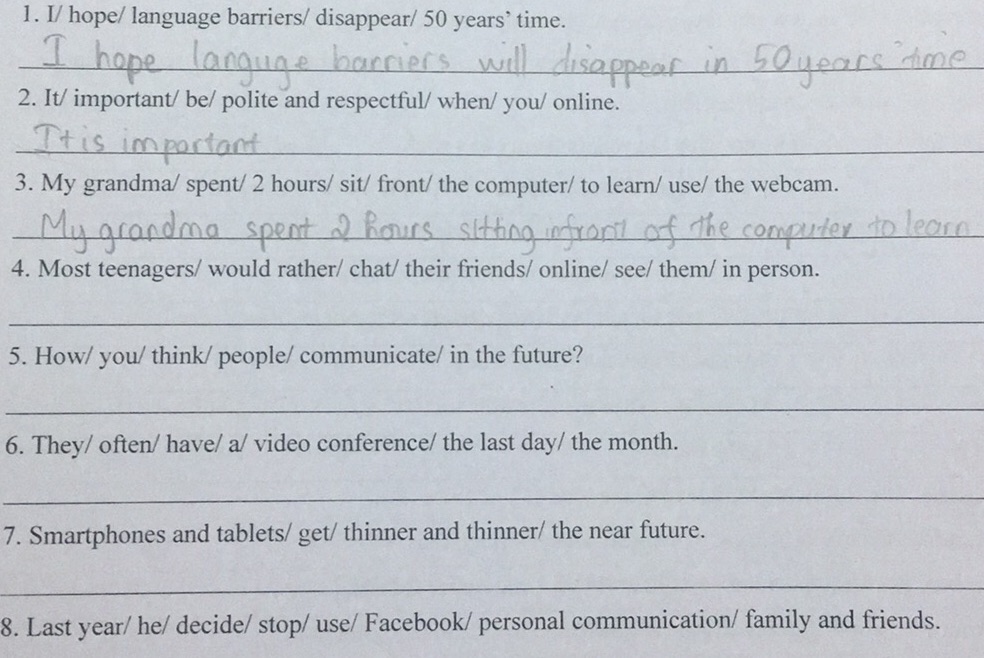 1. I/ hope/ language barriers/ disappear/ 50 years’ time.
I hope languge barriers will disappear in 50 years' time
2. It/ important/ be/ polite and respectful/ when/ you/ online.
It is important
3. My grandma/ spent/ 2 hours/ sit/ front/ the computer/ to learn/ use/ the webcam.
My grandma spent 2 hours sitting infront of the computer to learn
4. Most teenagers/ would rather/ chat/ their friends/ online/ see/ them/ in person.
5. How/ you/ think/ people/ communicate/ in the future?
6. They/ often/ have/ a/ video conference/ the last day/ the month.
7. Smartphones and tablets/ get/ thinner and thinner/ the near future.
8. Last year/ he/ decide/ stop/ use/ Facebook/ personal communication/ family and friends.